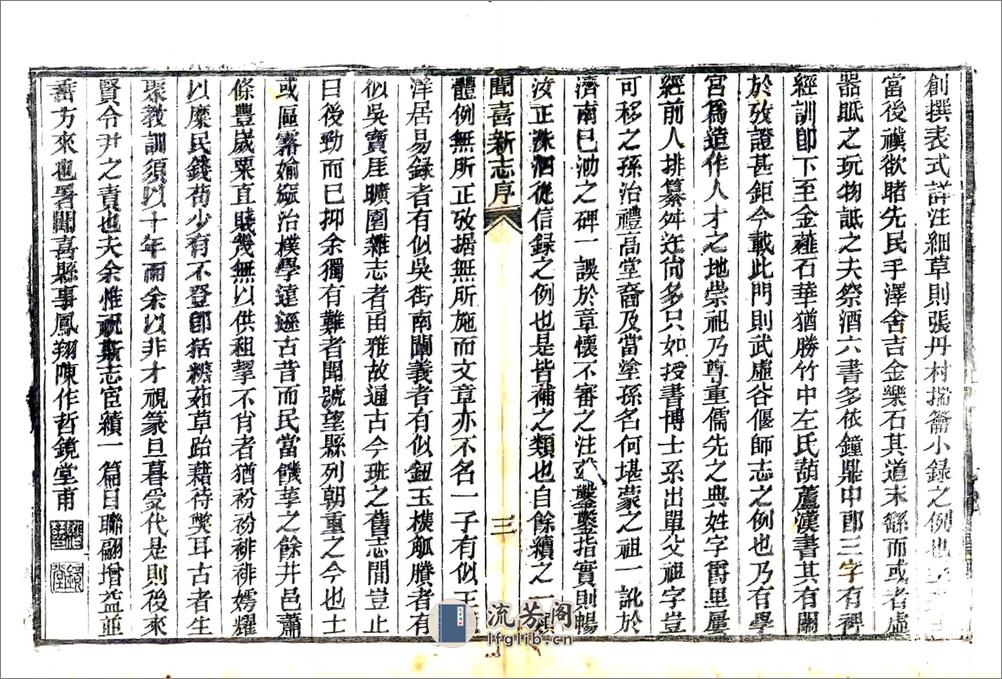 創撰表式詳注細草則張丹村揣籥小錄之例也
當後禩欲賭先民手澤舍吉金樂石其道末繇而或者虛
器眂之玩物詆之夫祭酒六書多依鐘鼎中郎三字有裨
經訓卽下至金薤石華猶勝竹中左氏葫蘆漢書其有關
於攷證甚鉅今載此門則武虛谷偃師志之例也乃有學
宮爲造作人才之地崇祀乃尊重儒先之典姓字爵里屢
經前人排纂舛迕尙多只如授書博士系出單父祖字豈
可移之孫治禮高堂裔及當塗孫名何堪蒙之祖一訛於
濟南已泐之碑一誤於章懷不審之注茲鑿鑿指實則暢
汝正洙泗從信錄之例也是皆補之類也自餘續之一類
聞喜新志序 三
體例無所正攷據無所施而文章亦不名一子有似王
洋居易錄者有似吳街南闡義者有似鈕玉樵觚賸者有
似吳寶崖曠園雜志者甭雅故通古今班之舊志聞豈止
曰後勁而已抑余獨有難者聞號望縣列朝重之今也士
或區霧婾窳治樸學遠遜古昔而民當饑莩之餘井邑蕭
條豐歲粟直賤幾無以供租挈不肖者猶衯衯裶裶嫮耀
以糜民錢苟少有不登卽括糠茹草跆藉待獘耳古者生
聚敎訓須以十年而余以非才視篆旦暮受代是則後來
賢令尹之責也夫余惟祝斯志宦績一篇日聯翩增益並
耑方來也署聞喜縣事鳳翔陳作哲鏡堂甫
流芳阁
lfglib.cn